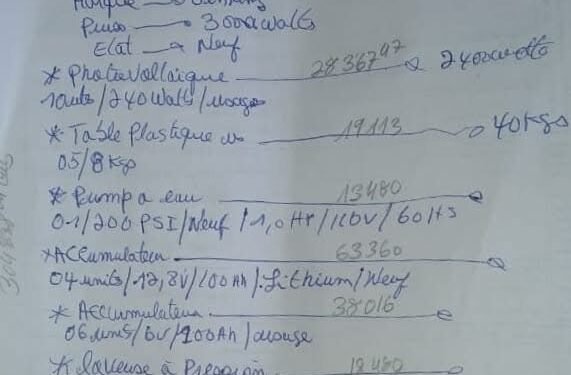 Puiss → 3000 watts
Etat → Neuf
* Photovoltaique 28367,97 2400 watts
10 units / 240 watts / usage
* Table Plastique 19113 40 Kgs
05/8 Kgs
* Pump a eau 13480
0-1/200 PSI/Neuf /1,0 HP/110V/60Hs
*Accumulateur 63360
04 units/12,8V/100Ah/.Lithium/Neuf
* Accumulateur 38016
06 units/6V/200Ah/usage
* laveuse à Pression 18480